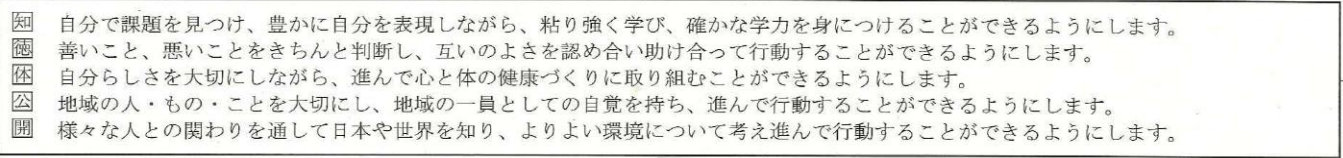 知 自分で課題を見つけ、豊かに自分を表現しながら、粘り強く学び、確かな学力を身につけることができるようにします。
徳 善いこと、悪いことをきちんと判断し、互いのよさを認め合い助け合って行動することができるようにします。
体 自分らしさを大切にしながら、進んで心と体の健康づくりに取り組むことができるようにします。
公 地域の人・もの・ことを大切にし、地域の一員としての自覚を持ち、進んで行動することができるようにします。
開 様々な人との関わりを通して日本や世界を知り、よりよい環境について考え進んで行動することができるようにします。